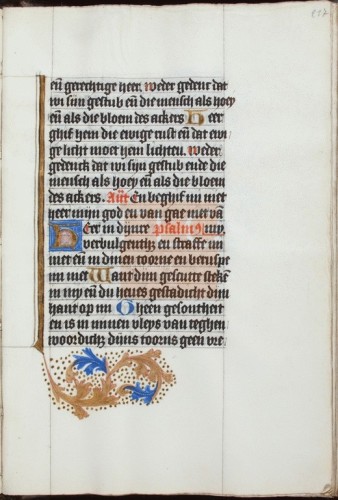 157
eñ gerechtige heer. weder gedenc dat
wi sijn gestub eñ die mensch als hoey
eñ als die bloem des ackers Heer
ghif hem die ewige rust eñ dat ewi
ge licht moet hem lichten. weder
gedenck dat wi sijn gestub ende die
mensch als hoey eñ als die bloem
des ackers. Añt En beghif mi niet
heer mijn god en van gae niet vã
Heer in dijnre psalm9 my.
verbulgenth; en straffe mi
niet eñ in dinen toorne en berispe
mi niet Want dijn gescutte steken
in my eñ du heues gestadicht dijn
hant op mi O heen gesontheit
en is in minen vleys van teghen
woordich; dijns toorns geen vre